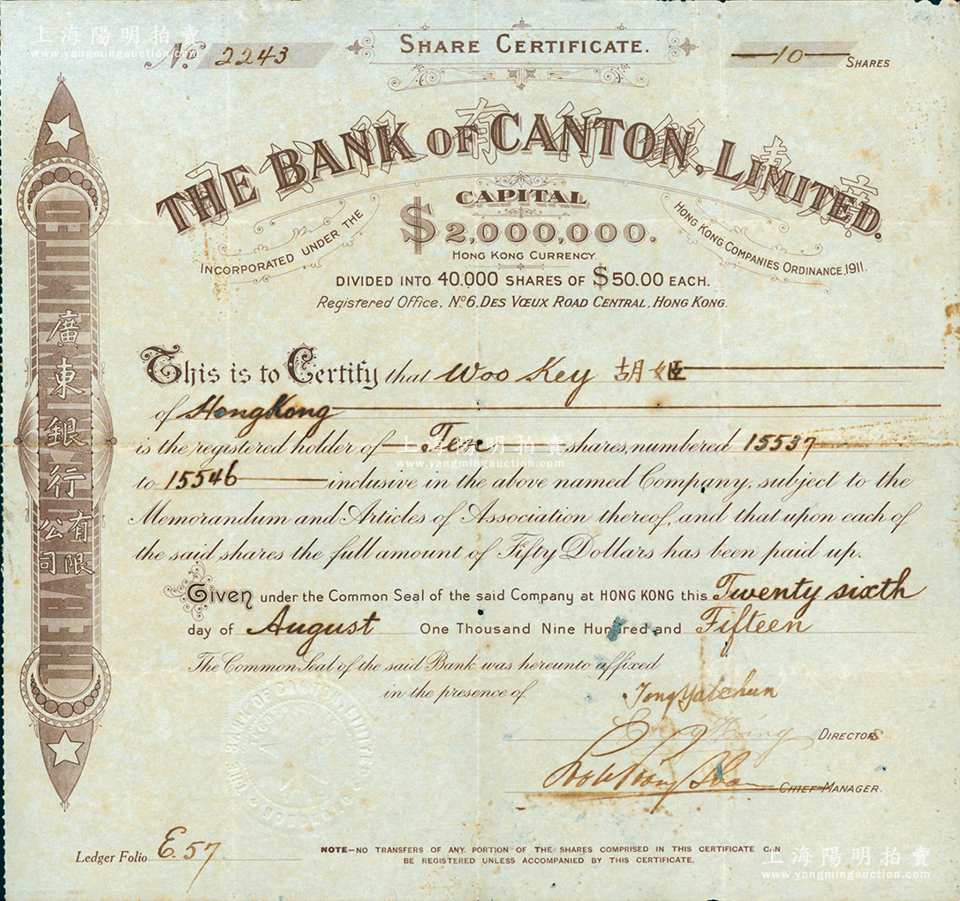 上海陽明拍賣
www.yangmingauction.com
No. 2243
SHARE CERTIFICATE.
10 SHARES
廣東銀行有限公司
THE BANK OF CANTON, LIMITED.
CAPITAL
$2,000,000.
HONG KONG CURRENCY.
INCORPORATED UNDER THE
HONG KONG COMPANIES ORDINANCE, 1911.
DIVIDED INTO 40.000 SHARES OF $50.00 EACH.
Registered Office, No 6, DES VŒUX ROAD CENTRAL, HONG KONG.
THE BANK OF CANTON LIMITED
廣東銀行
有限
公司
This is to Certify that Woo Key 胡姬
of HongKong
is the registered holder of Ten shares, numbered 15537
上海陽明拍賣
www.yangmingauction.com
to 15546 inclusive in the above named Company, subject to the
Memorandum and Articles of Association thereof, and that upon each of
the said shares the full amount of Fifty Dollars has been paid up.
Given under the Common Seal of the said Company at HONG KONG this Twenty sixth
day of August One Thousand Nine Hundred and Fifteen
The Common Seal of the said Bank was hereunto affixed
in the presence of
THE BANK OF CANTON, LIMITED
DIRECTORS
CHIEF MANAGER.
Ledger Folio E. 57.
NOTE—NO TRANSFERS OF ANY PORTION OF THE SHARES COMPRISED IN THIS CERTIFICATE CAN
BE REGISTERED UNLESS ACCOMPANIED BY THIS CERTIFICATE.
上海陽明拍賣
www.yangmingauction.com